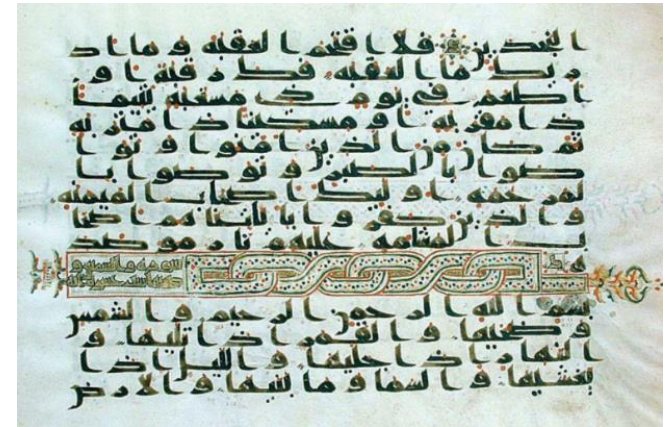 النجدين فلا اقتحم العقبة وما اد
ريك ما العقبة فك رقبة او
اطعم في يوم ذي مسغبة يتيما
ذا مقربة او مسكينا ذا متربة
ثم كان من الذين امنوا وتوا
صوا بالصبر وتوصوا با
لمرحمة اوليك اصحاب الميمنة
والذين كفروا باياتنا هم اصحا
ب المشمة عليهم نار موصد
ة
بسم الله الرحمن الرحيم والشمس
وضحيها والقمر اذا تليها و
النهار اذا جليها والليل اذا
يغشيها والسما وما بنيها والارض